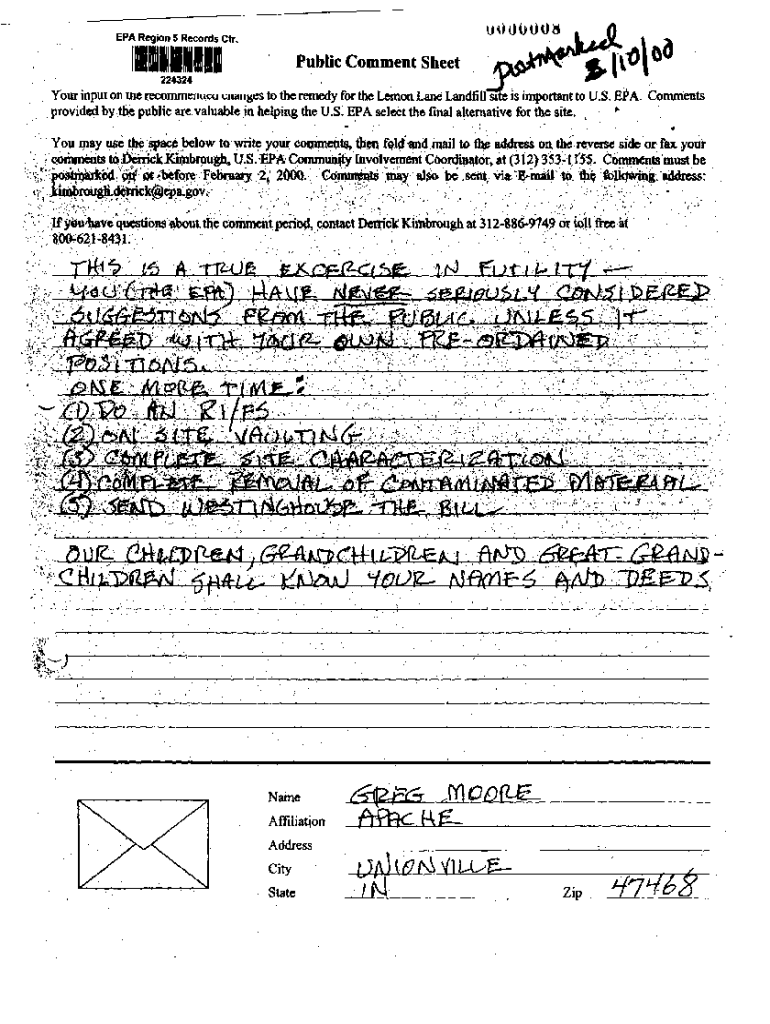 EPA Region 5 Records Ctr.
224324
0000008
Public Comment Sheet
Postmarked
3/10/00
Your input on the recommended changes to the remedy for the Lemon Lane Landfill site is important to U.S. EPA. Comments
provided by the public are valuable in helping the U.S. EPA select the final alternative for the site.
You may use the space below to write your comments, then fold and mail to the address on the reverse side or fax your
comments to Derrick Kimbrough, U.S. EPA Community Involvement Coordinator, at (312) 353-1155. Comments must be
postmarked on or before February 2, 2000. Comments may also be sent via E-mail to the following address:
kimbrough.derrick@epa.gov.
If you have questions about the comment period, contact Derrick Kimbrough at 312-886-9749 or toll free at
800-621-8431.
THIS IS A TRUE EXCERCISE IN FUTILITY —
YOU (THE EPA) HAVE NEVER SERIOUSLY CONSIDERED
SUGGESTIONS FROM THE PUBLIC UNLESS IT
AGREED WITH YOUR OWN PRE-ORDAINED
POSITIONS.
ONE MORE TIME:
(1) DO AN RI/FS
(2) ON SITE VAULTING
(3) COMPLETE SITE CAARACTERIZATION
(4) COMPLETE REMOVAL OF CONTAMINATED MATERIAL
(5) SEND WESTINGHOUSE THE BILL
OUR CHILDREN, GRANDCHILDREN AND GREAT-GRAND-
CHILDREN SHALL KNOW YOUR NAMES AND DEEDS
Name GREG MOORE
Affiliation APACHE
Address
City UNIONVILLE
State IN Zip 47468